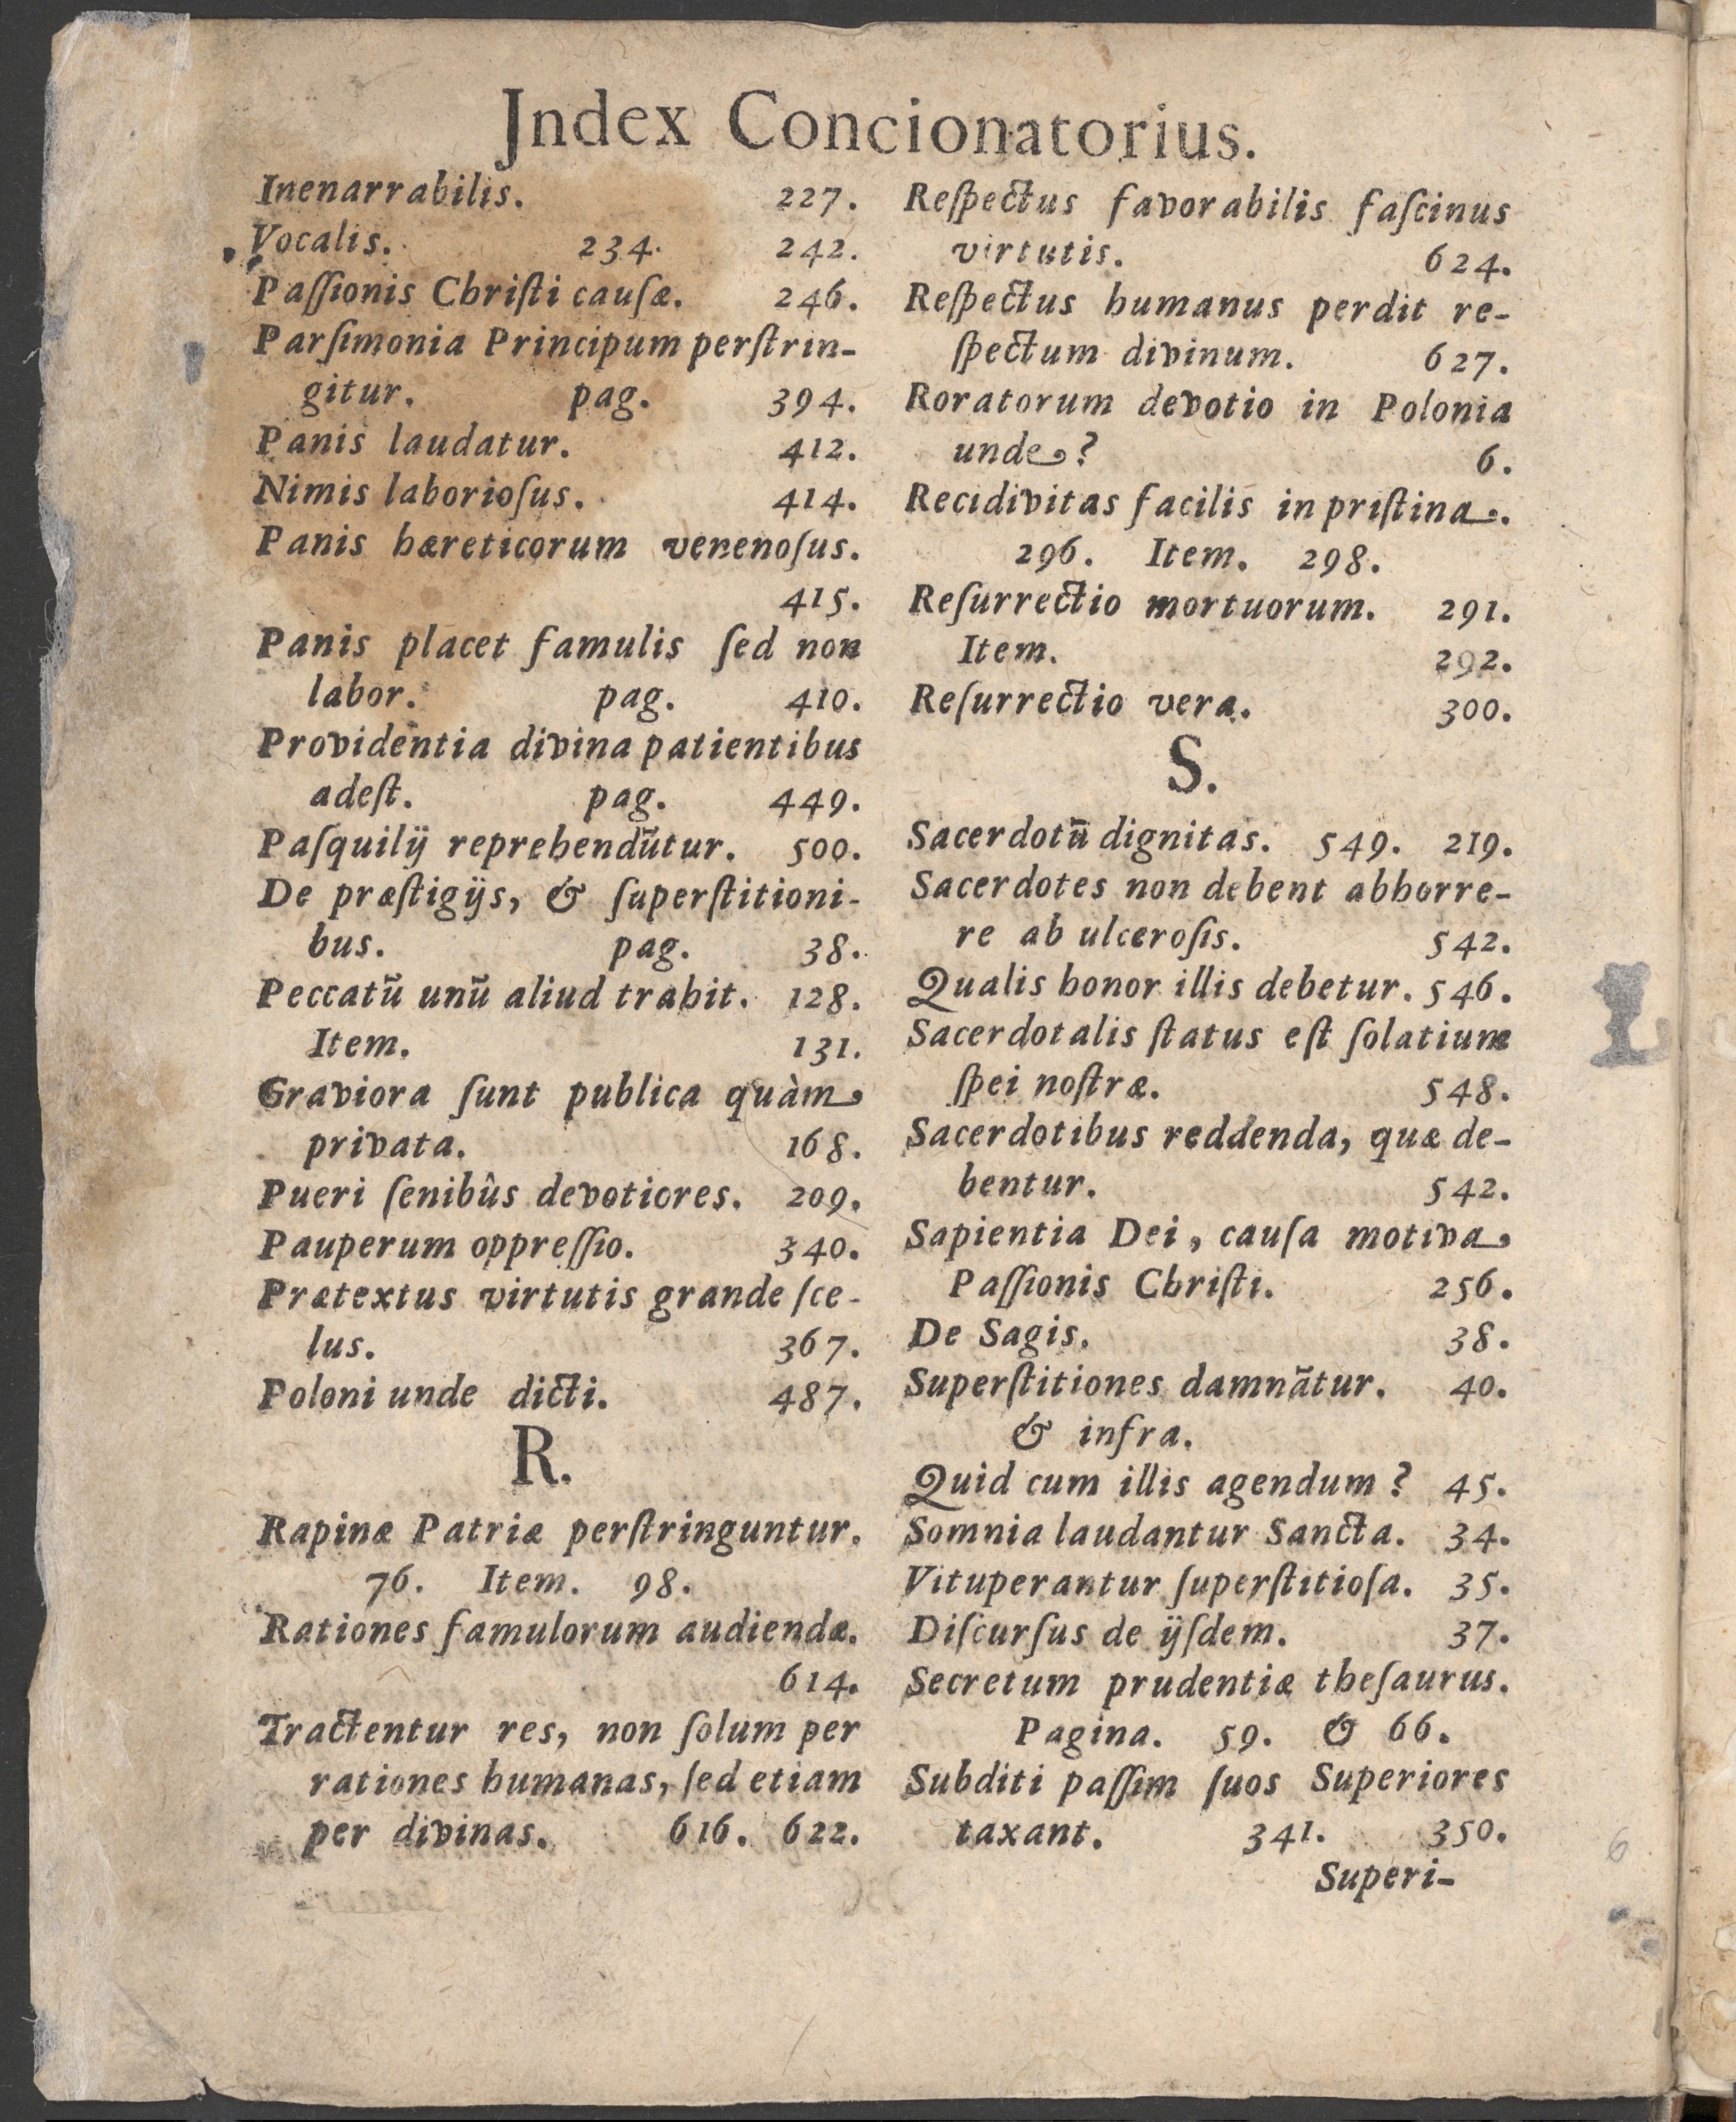 Jndex Concionatorius.
Inenarrabilis. 227.
Vocalis. 234. 242.
Paſſionis Chriſti cauſæ. 246.
Parſimonia Principum perſtrin-
gitur. pag. 394.
Panis laudatur. 412.
Nimis laborioſus. 414.
Panis hæreticorum venenoſus.
415.
Panis placet famulis ſed non
labor. pag. 410.
Providentia divina patientibus
adeſt. pag. 449.
Paſquilij reprehendũtur. 500.
De præſtigijs, & ſuperſtitioni-
bus. pag. 38.
Peccatũ unũ aliud trahit. 128.
Item. 131.
Graviora ſunt publica quàm
privata. 168.
Pueri ſenibûs devotiores. 209.
Pauperum oppreſſio. 340.
Prætextus virtutis grande ſce-
lus. 367.
Poloni unde dicti. 487.
R.
Rapinæ Patriæ perſtringuntur.
76. Item. 98.
Rationes famulorum audiendæ.
614.
Tractentur res, non ſolum per
rationes humanas, ſed etiam
per divinas. 616. 622.
Reſpectus favorabilis faſcinus
virtutis. 624.
Reſpectus humanus perdit re-
ſpectum divinum. 627.
Roratorum devotio in Polonia
unde? 6.
Recidivitas facilis in priſtina.
296. Item. 298.
Reſurrectio mortuorum. 291.
Item. 292.
Reſurrectio vera. 300.
S.
Sacerdotũ dignitas. 549. 219.
Sacerdotes non debent abhorre-
re ab ulceroſis. 542.
Qualis honor illis debetur. 546.
Sacerdotalis ſtatus eſt ſolatium
ſpei noſtræ. 548.
Sacerdotibus reddenda, quæ de-
bentur. 542.
Sapientia Dei, cauſa motiva
Paſſionis Chriſti. 256.
De Sagis. 38.
Superſtitiones damnãtur. 40.
& infra.
Quid cum illis agendum? 45.
Somnia laudantur Sancta. 34.
Vituperantur ſuperſtitioſa. 35.
Diſcurſus de ijſdem. 37.
Secretum prudentiæ theſaurus.
Pagina. 59. & 66.
Subditi paſſim ſuos Superiores
taxant. 341. 350.
Superi-